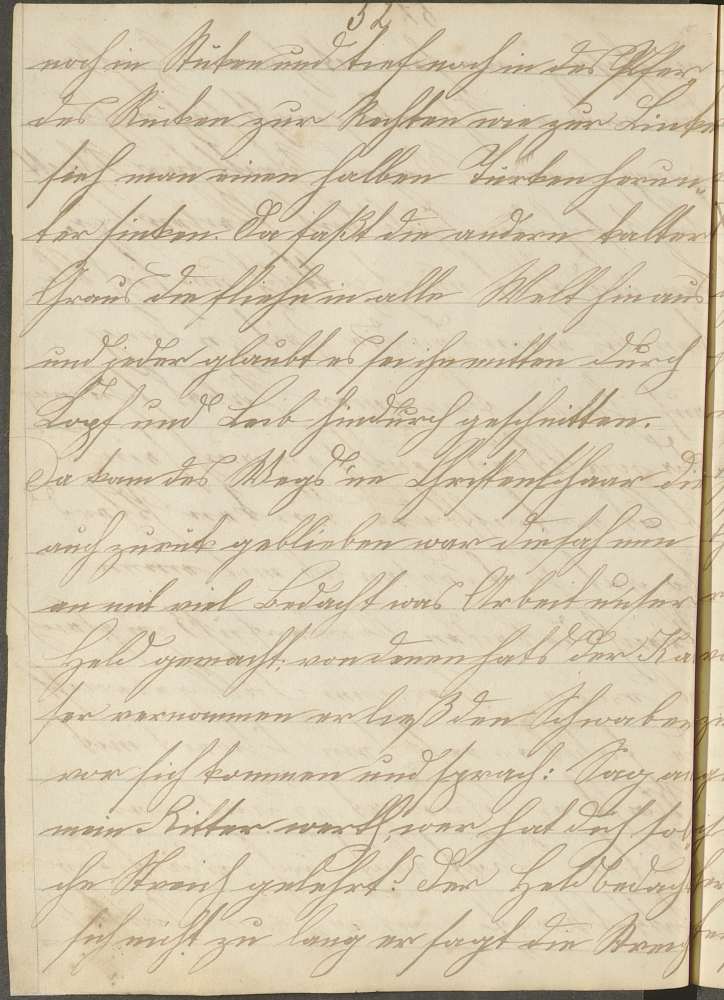 52
noch in Stuken und tief noch in des Pfer„
des Rücken zur Rechten wie zur Linke
sieh man einen halben Türken herun„
ter sinken. Da faßt die andern kalter
Graus die fliehn in alle Welt hinaus
und jeder glaubt es sei ihm mitten durch
Kopf und Leib hindurch geschnitten.
Da kam des Wegs 'ne Christenschaar die
auch zurük geblieben war die sah nun
an mit viel Bedacht was Arbeit unser
Held gemacht; von denen hats der Kai
ser vernommen er ließ den Schwaben
vor sich kommen und sprach: Sag an
mein Ritter werth, wer hat dich sol
che Streich gelehrt? Der Held bedach
sich nicht zu lang er sagt die Streich